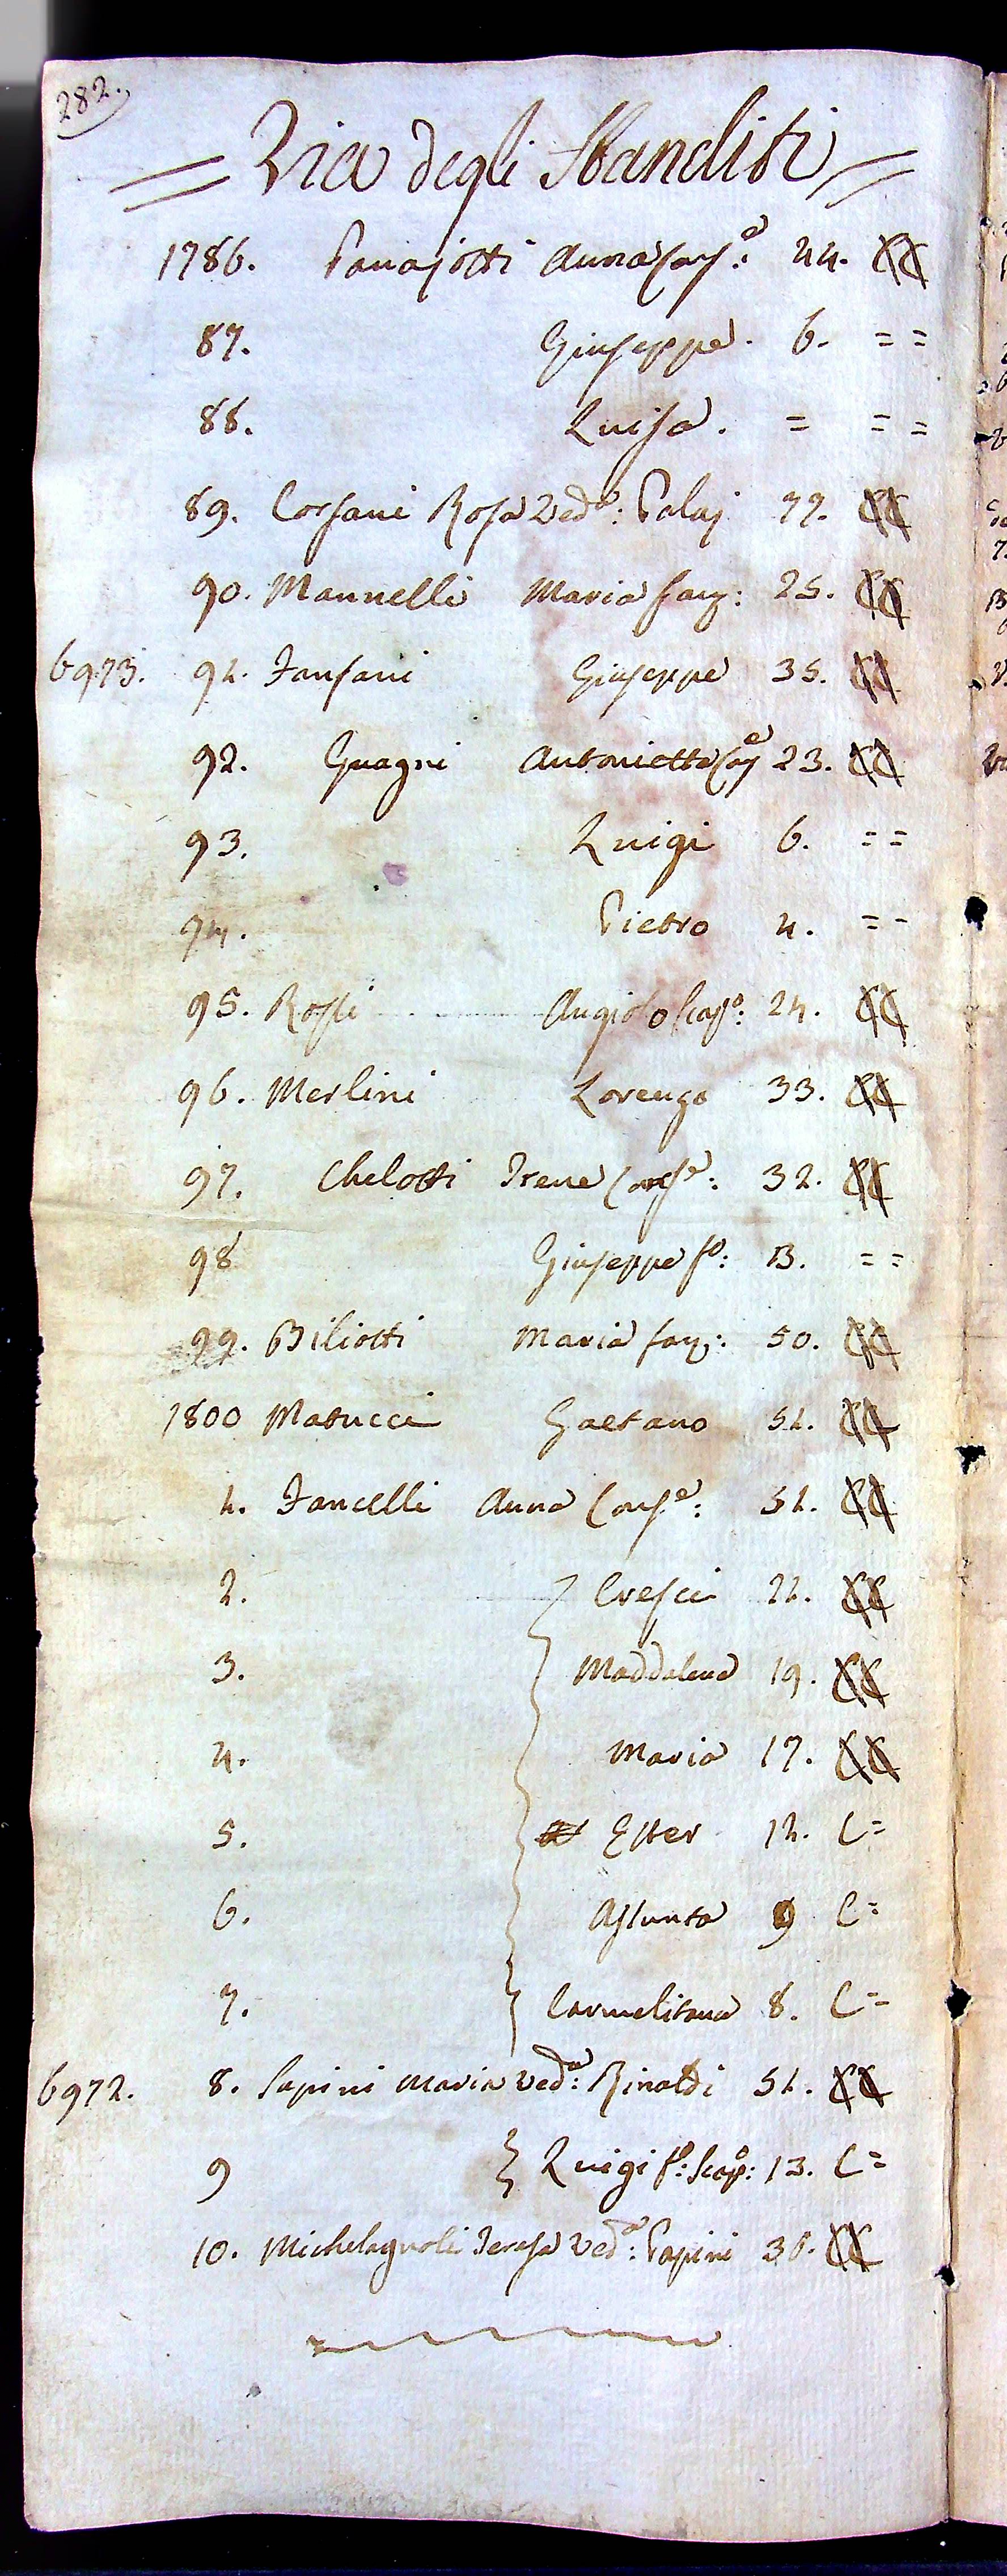 282.
= Via degli Sbanditi =
1786. Panajotti Anna Con:e 44. CC
87. Giuseppe. 6. = =
88. Luisa. = = =
89. Corsani Rosa Ved:a Palaj 77. CC
90. Mannelli Maria fan: 25. CC
6973. 91. Fanfani Giuseppe 35. CC
92. Guagni Antonietta Con:e 23. CC
93. Luigi 6. = =
94. Pietro 4. = =
95. Rossi Angiolo Scap:o 24. CC
96. Merlini Lorenzo 33. CC
97. Chelotti Irene Cons:e 32. CC
98 Giuseppe f:o 13. = =
99. Biliotti Maria fan: 50. CC
1800 Matucci Gaetano 51. CC
1. Fancelli Anna Cons:e 51. CC
2. Cresci 21. CC
3. Maddalena 19. CC
4. Maria 17. CC
5. Ester 11. C=
6. Assunta 9 C=
7. Carmelitana 8. C=
6972. 8. Papini Maria Ved:a Rinaldi 51. CC
9 Luigi f:o Scap:o 13. C=
10. Michelagnoli Teresa Ved:a Papini 36. CC